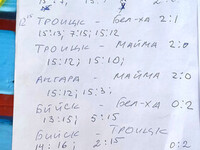 12⁰⁰ ТРОИЦК – БЕЛ-ХА 2:1
15:13; 7:15; 15:12
ТРОИЦК – МАЙМА 2:0
15:12; 15:10;
АНГАРА – МАЙМА 2:0
15:12; 15:3;
БИЙСК – БЕЛ-ХА 0:2
13:15; 5:15
БИЙСК – ТРОИЦК 0:2
14:16; 2:15